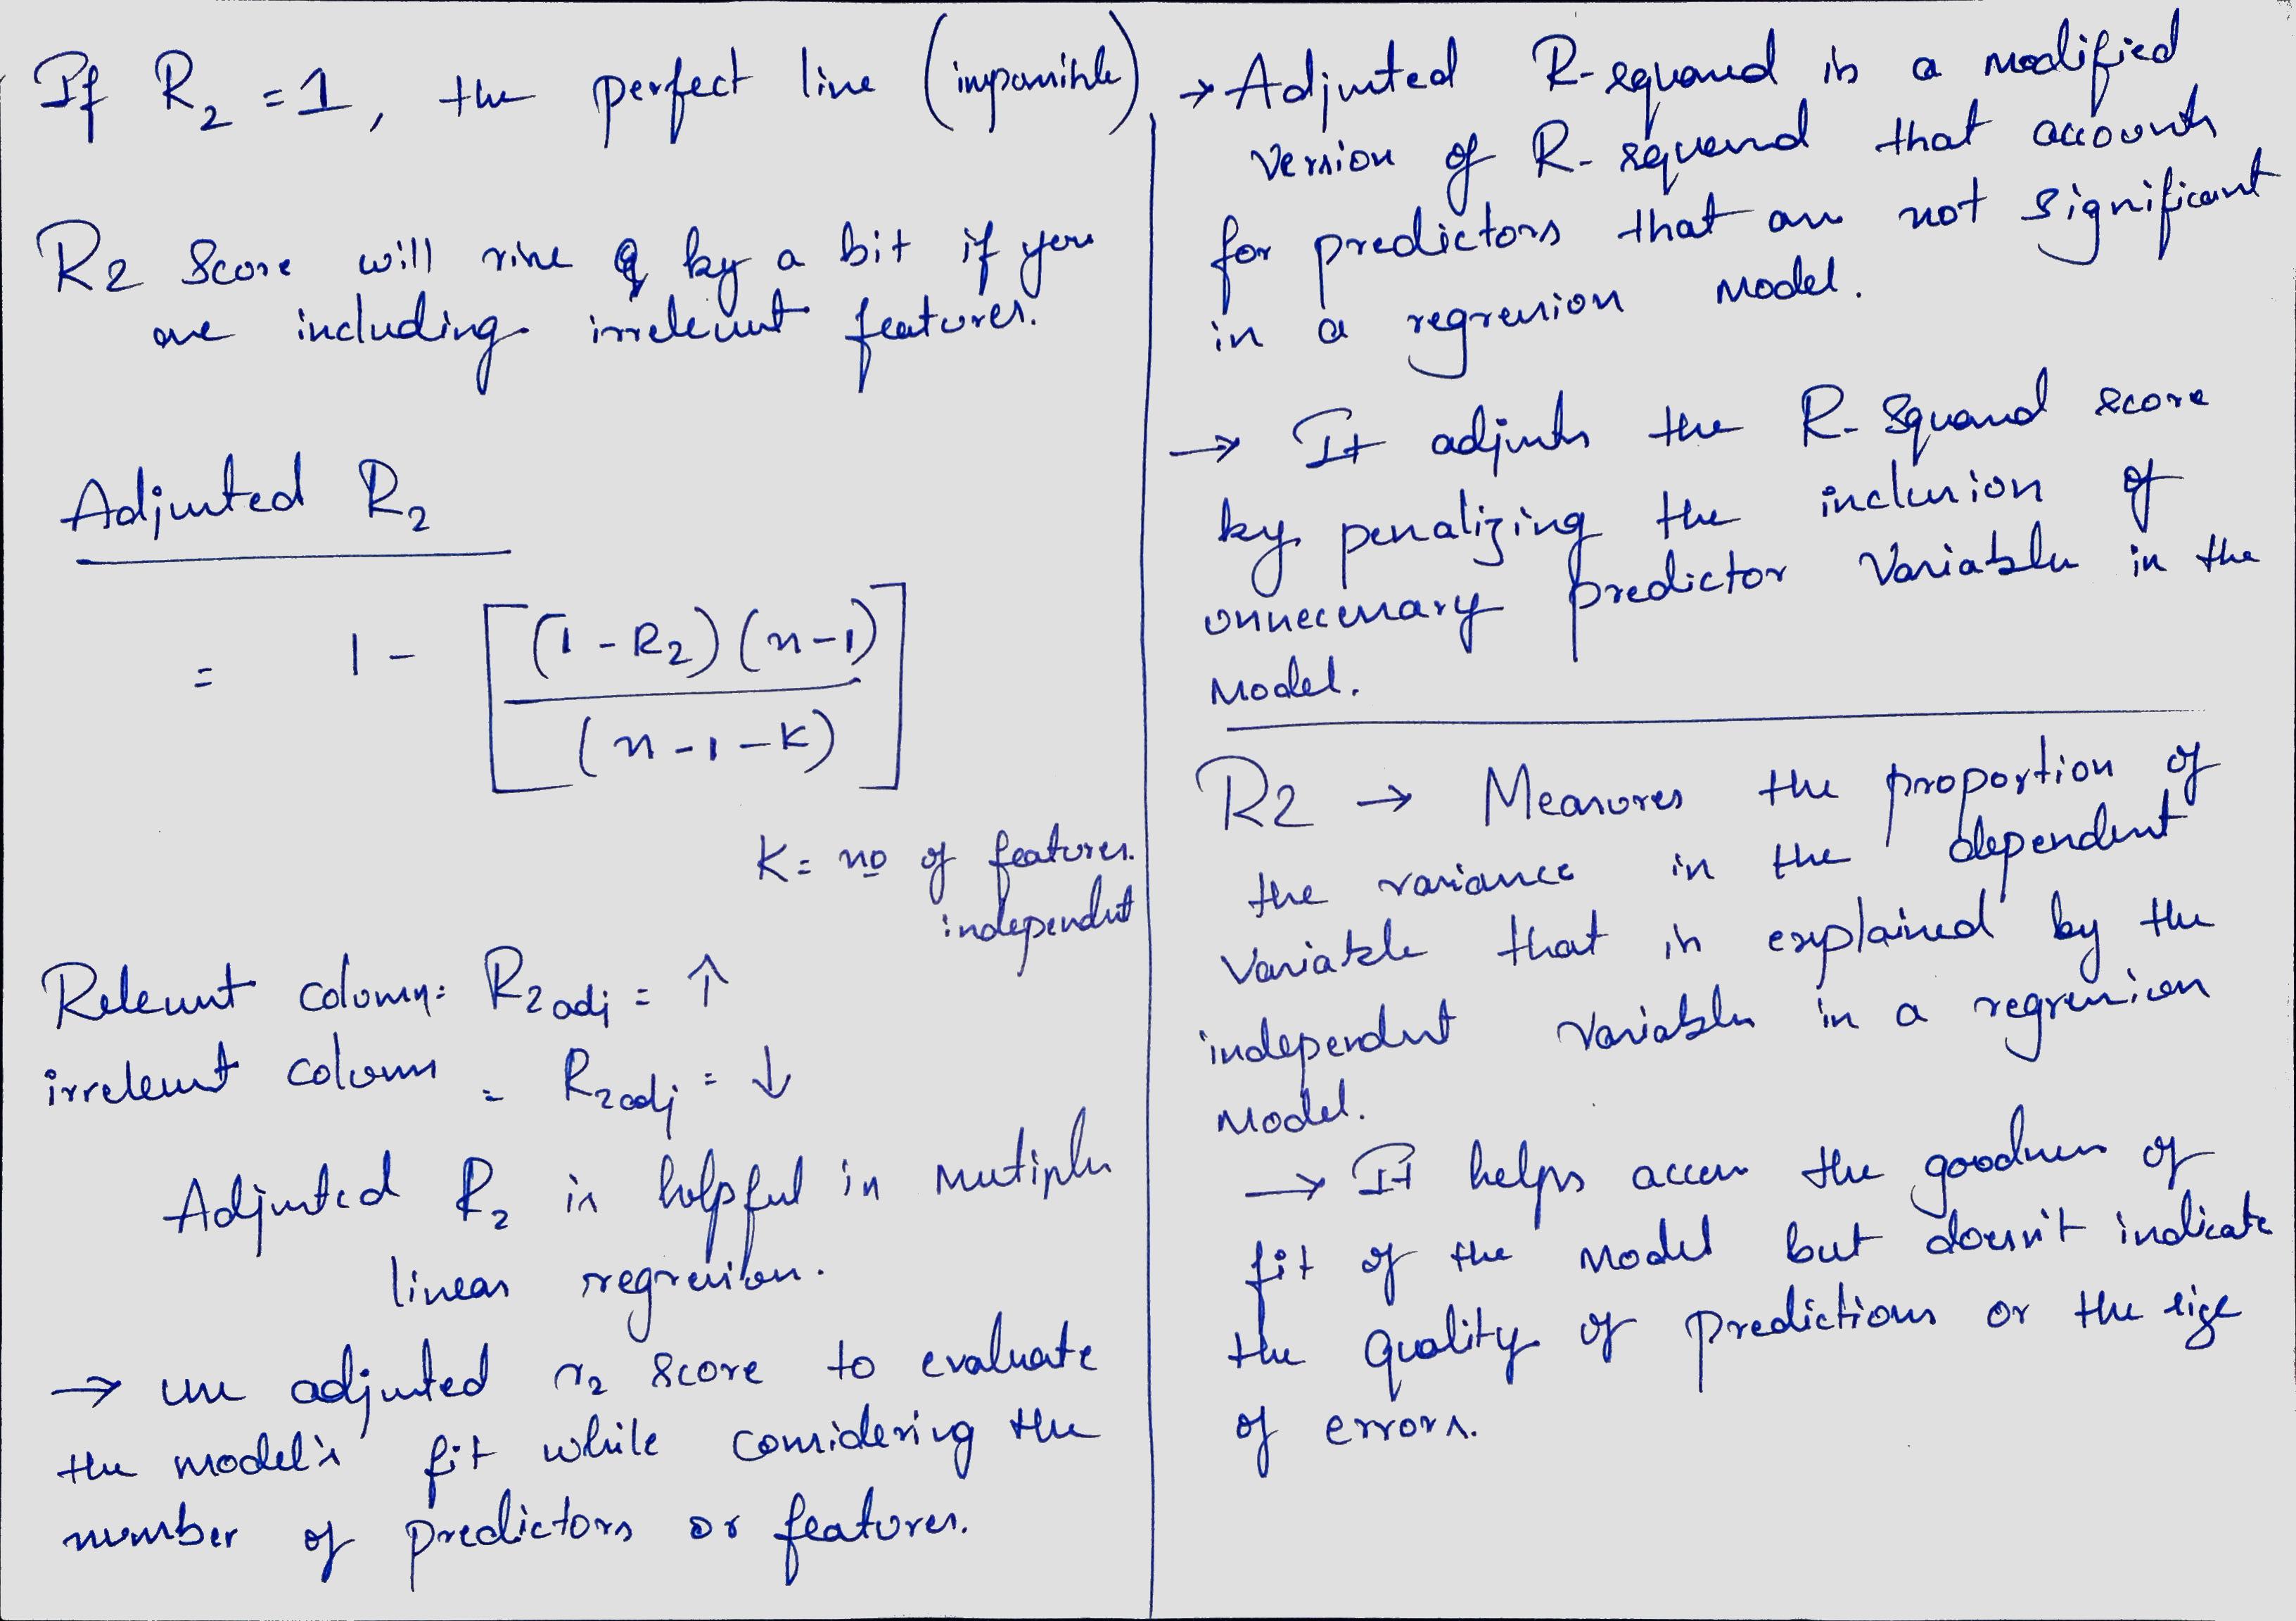 If R₂ = 1, the perfect line (impossible)
R2 Score will rise by a bit if you
are including irrelevant features.
Adjusted R₂
= 1 - [(1 - R₂) (n - 1)
(n - 1 - K)]
K = no of features.
independent
Relevant column = R₂ adj = ↑
irrelevant column = R₂ adj = ↓
Adjusted R₂ is helpful in mutiple
linear regression.
→ use adjusted r₂ score to evaluate
the model's fit while considering the
number of predictors or features.
→ Adjusted R-squared is a modified
version of R-squared that accounts
for predictors that are not significant
in a regression model.
→ It adjusts the R-Squared score
by penalizing the inclusion of
unnecessary predictor variables in the
Model.
R2 → Measures the proportion of
the variance in the dependent
variable that is explained by the
independent variables in a regression
Model.
→ It helps access the goodness of
fit of the model but doesn't indicate
the quality of predictions or the size
of errors.